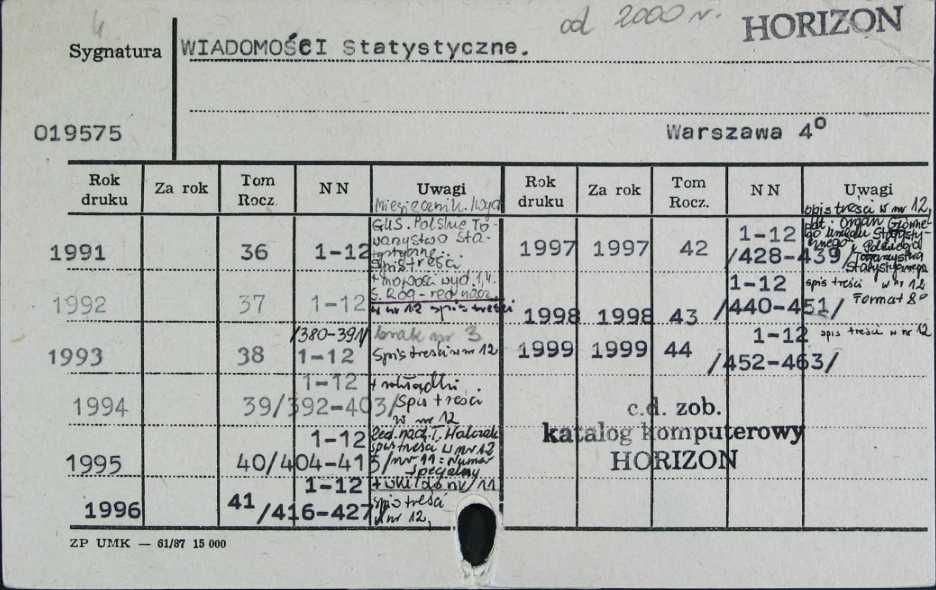 4 od 2000 r. HORIZON
Sygnatura WIADOMOŚCI Statystyczne.
019575 Warszawa 4°
Rok druku Za rok Tom Rocz. NN Uwagi Rok druku Za rok Tom Rocz. NN Uwagi
Miesięcznik.
GUS. Polskie To-
warzystwo Sta-
tystyczne.
1991 36 1-12 Spis treści
+ nowości wyd. 1,4.
S. Róg - red. nacz.
1992 37 1-12 w nr 12 spis treści
/380-391/ brak nr 3
1993 38 1-12 Spis treści w nr 12
1-12 + wkładki.
1994 39/392-403/ Spis treści
w nr 12
1-12 Red. nacz. T. Walczak
spis treści w nr 12
1995 40/404-415/ nr 11: Numer
specjalny
1-12 + wkł. do nr 11
1996 41/416-427/ spis treści
w nr 12,
spis treści w nr 12,
pt. Organ Główne-
go Urzędu Statysty-
cznego i Polskiego
Towarzystwa
Statystycznego
1997 1997 42 1-12
/428-439/
1-12 spis treści w nr 12
1998 1998 43 /440-451/ Format 8°
1-12 spis treści w nr 12
1999 1999 44 /452-463/
c.d. zob.
katalog komputerowy
HORIZON
ZP UMK — 61/87 15 000